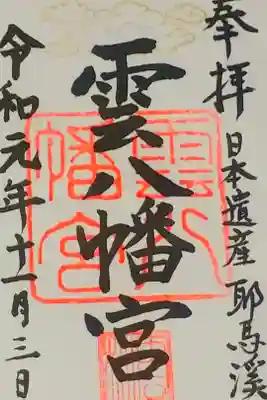 奉拝 日本遺産 耶馬渓
雲八幡宮
令和元年十一月三日
雲八
幡宮